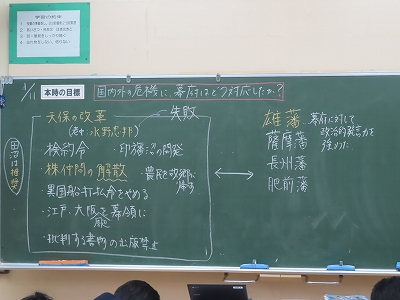 学習の約束
1/11
本時の目標
国内外の危機に、幕府はどう対応したか?
天保の改革
失敗
(老中:水野忠邦)
倹約令 ・印旛沼の開発
・株仲間の解散 農民を故郷に帰す
・異国船打払令をやめる
・江戸、大阪を幕領に
・批判する書物の出版禁止
田沼は推奨
雄藩
幕府に対して
政治的発言力を
強めた
薩摩藩
長州藩
肥前藩